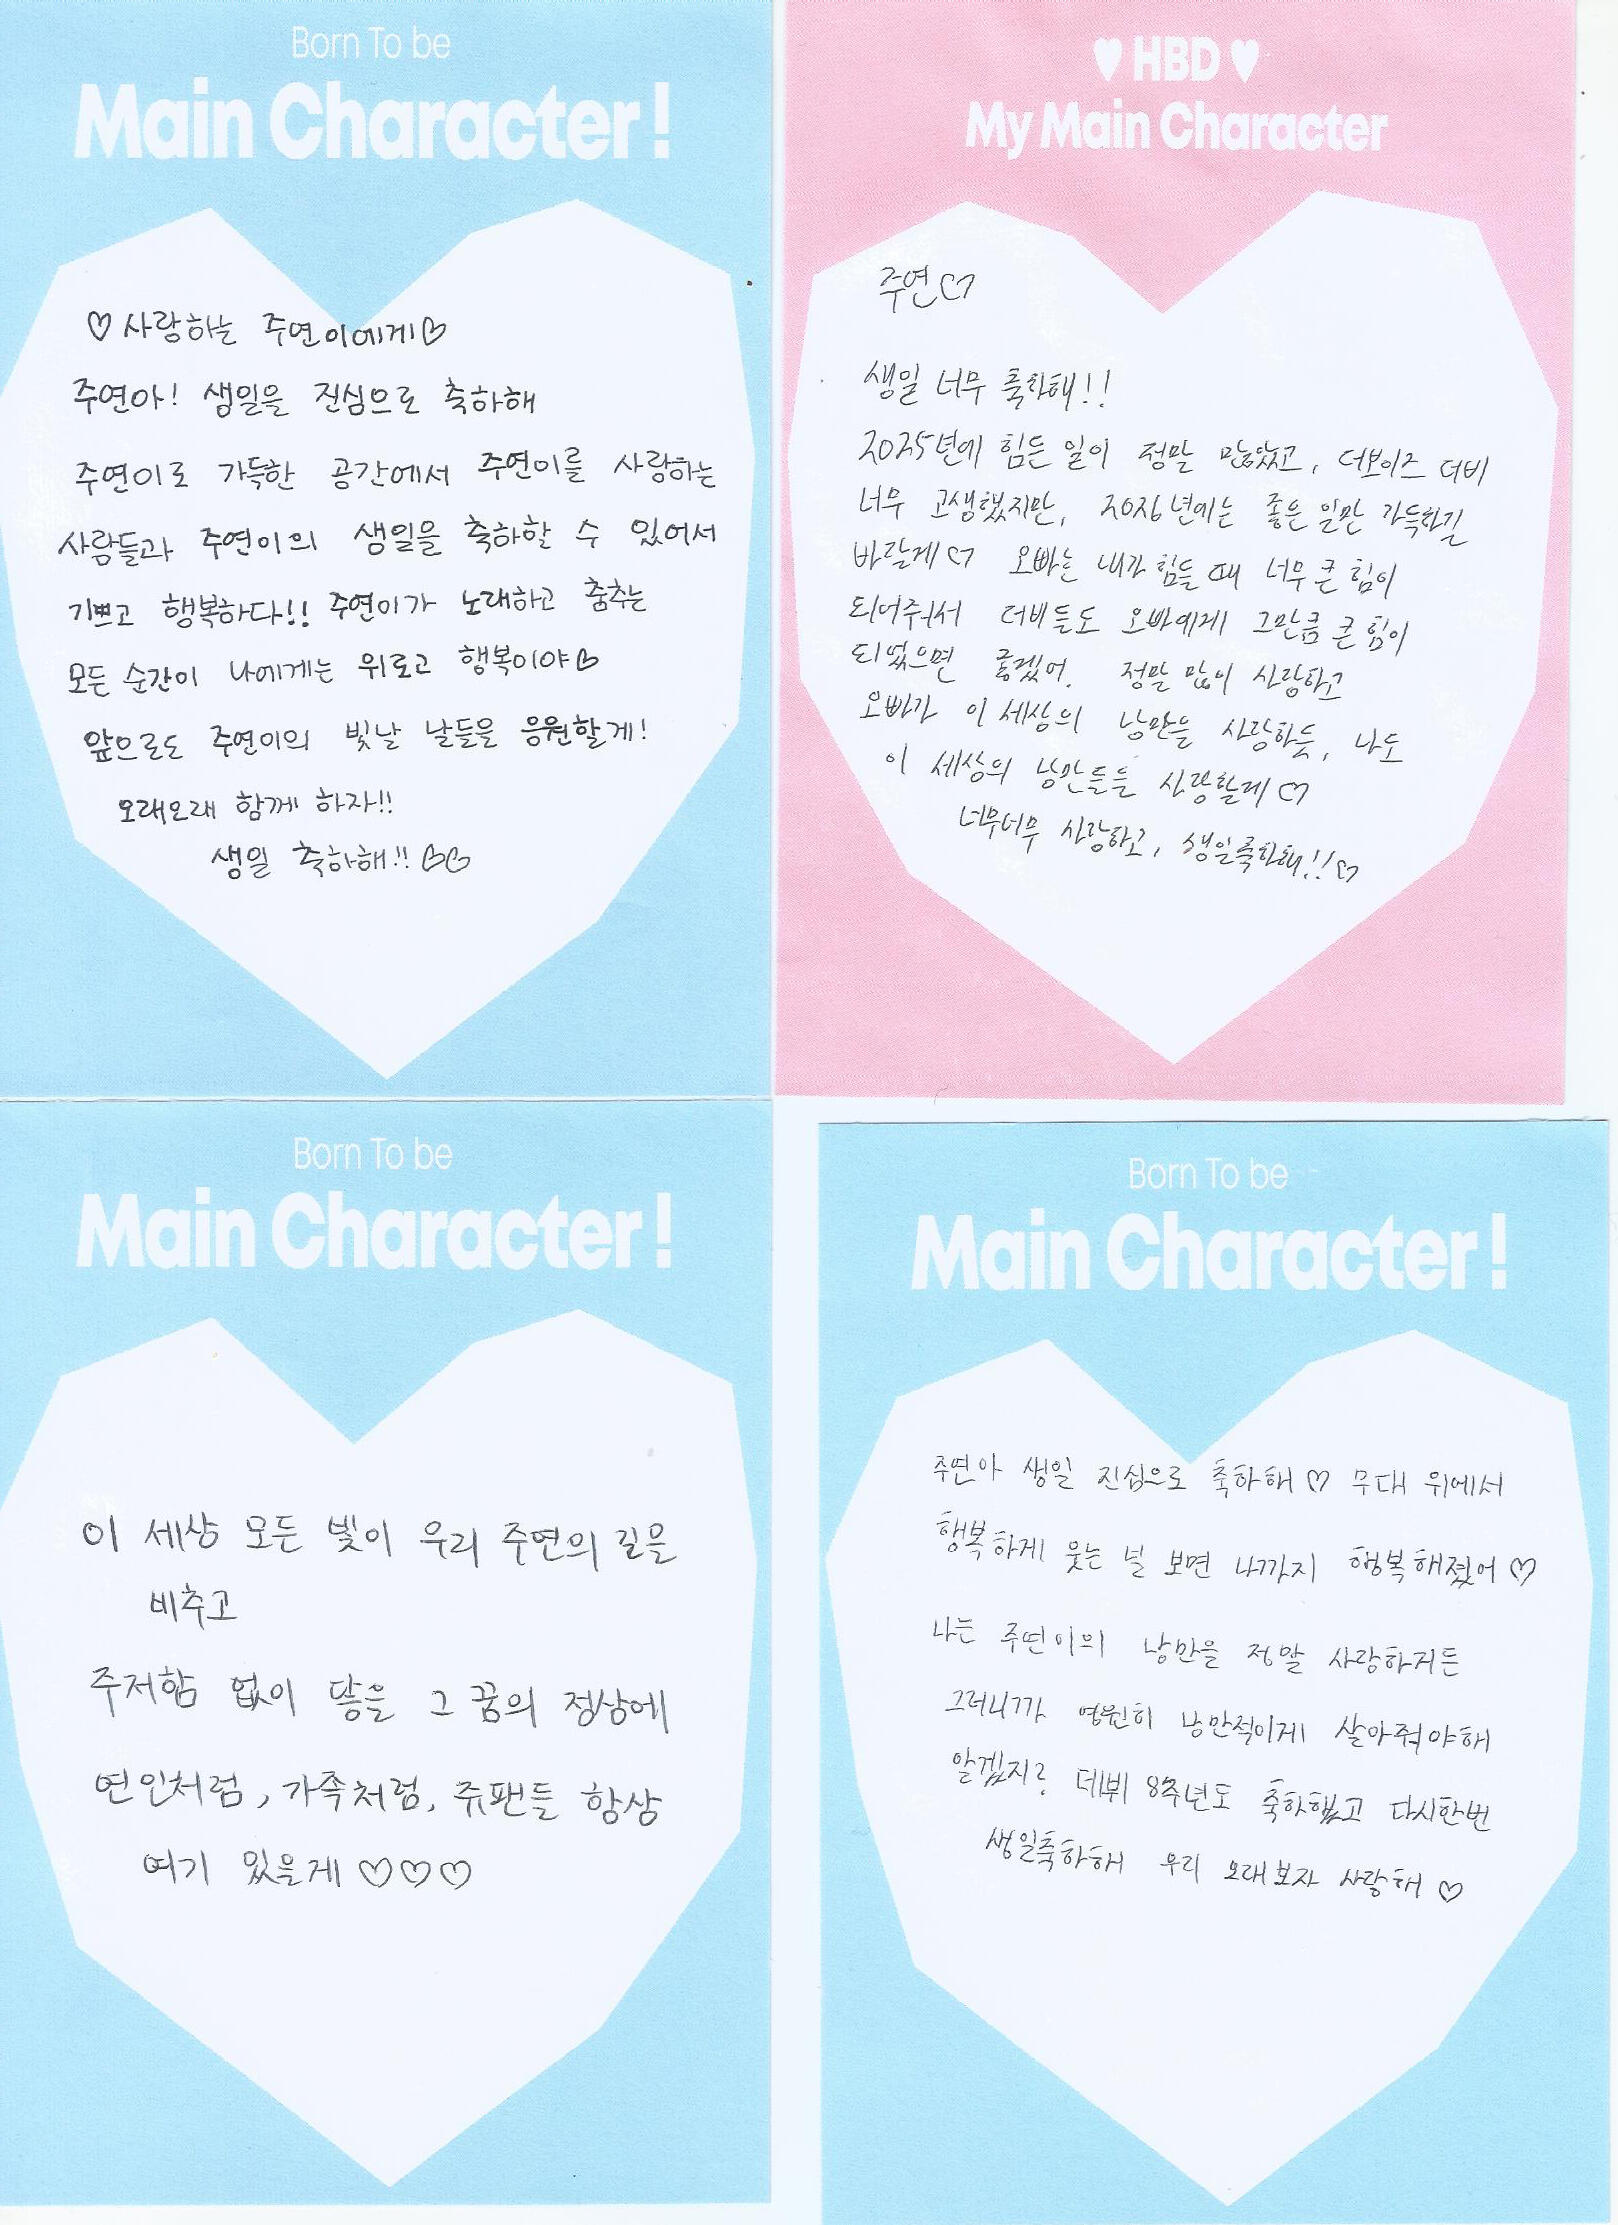 Born To be
Main Character!
♡사랑하는 주연이에게♡
주연아! 생일을 진심으로 축하해
주연이로 가득한 공간에서 주연이를 사랑하는
사람들과 주연이의 생일을 축하할 수 있어서
기쁘고 행복하다!! 주연이가 노래하고 춤추는
모든 순간이 나에게는 위로고 행복이야♡
앞으로도 주연이의 빛날 날들을 응원할게!
오래오래 함께 하자!!
생일 축하해!! ♡♡
♥ HBD ♥
My Main Character
주연♡
생일 너무 축하해!!
2025년에 힘든 일이 정말 많았고, 더보이즈 더비
너무 고생했지만, 2026년에는 좋은 일만 가득하길
바랄게♡ 오빠는 내가 힘들 때 너무 큰 힘이
되어줘서 더비들도 오빠에게 그만큼 큰 힘이
되었으면 좋겠어. 정말 많이 사랑하고
오빠가 이 세상의 낭만을 사랑하듯, 나도
이 세상의 낭만들을 사랑할게♡
너무너무 사랑하고, 생일축하해!!♡
Born To be
Main Character!
이 세상 모든 빛이 우리 주연의 길을
비추고
주저함 없이 닿을 그 꿈의 정상에
연인처럼, 가족처럼, 쥬팬들 항상
여기 있을게 ♡♡♡
Born To be
Main Character!
주연아 생일 진심으로 축하해♡ 무대 위에서
행복하게 웃는 널 보면 나까지 행복해졌어♡
나는 주연이의 낭만을 정말 사랑하거든
그러니까 영원히 낭만적이게 살아줘야해
알겠지? 데뷔 8주년도 축하했고 다시한번
생일축하해 우리 오래보자 사랑해 ♡